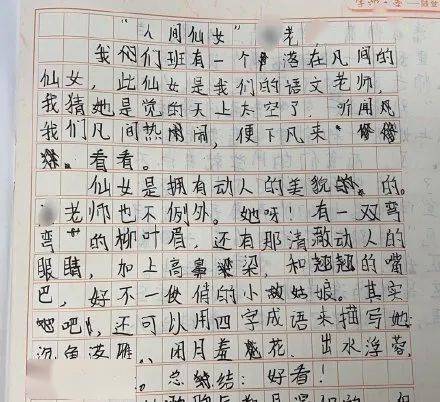 “人间仙女” 老
我们班有一个落在凡间的
仙女，此仙女是我们的语文老师，
我猜她是觉的天上太空了，听闻
我们凡间热闹，便下凡来
看看。
仙女是拥有动人的美貌的。
老师也不例外。她呀！有一双弯
弯的柳叶眉，还有那清澈动人的
眼睛，加上高鼻梁，和翘翘的嘴
巴，好不一俏的小姑娘。其实
吧，还可以用四字成语来描写她
沉鱼落雁、闭月羞花、出水浮蓉
。总结：好看！